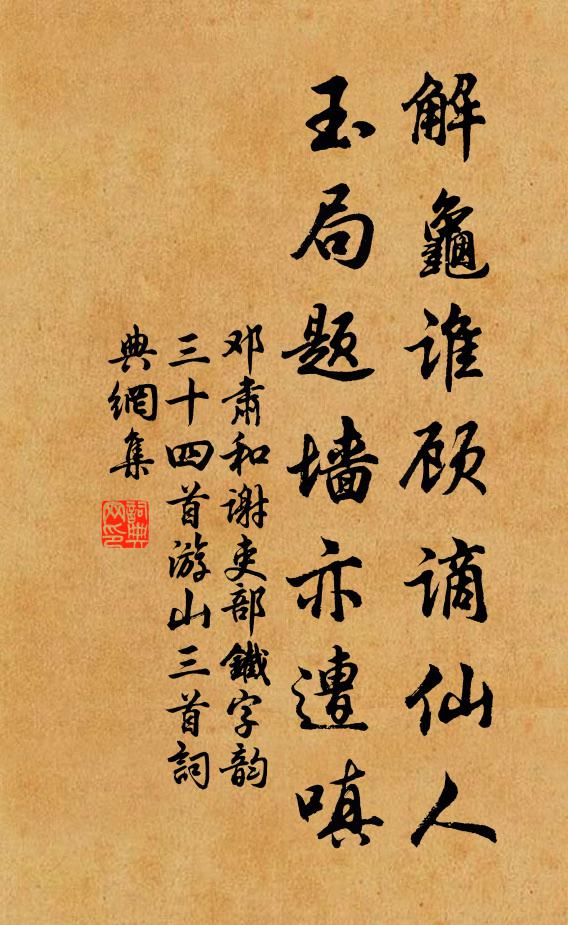 解龜谁顾谪仙人
玉局题墙亦遭嗔
邓肃和谢吏部鐵字韵
三十四首游山三首詞
典網集
詞典
网印